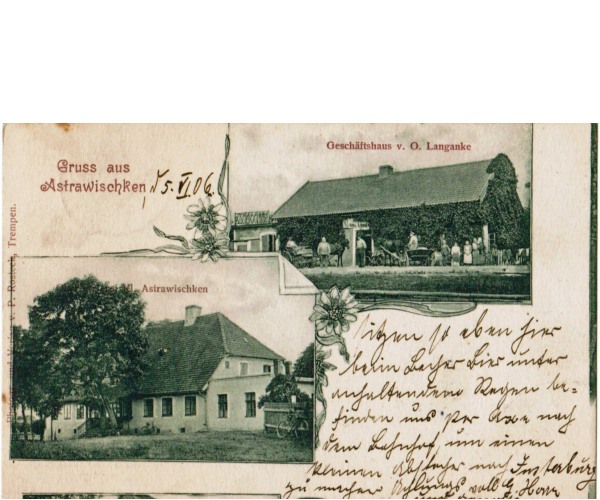 Gruss aus
Astrawischken,
d 5. VI. 06.
Geschäftshaus v. O. Langanke
Kl. Astrawischken
v. P. Trempen.
Sitzen so eben hier
beim Becher Bier unter
anhaltendem Regen be=
finden uns per Axe nach
dem Bahnhof, um einen
kleinen Abstecher nach Insterburg
zu machen.